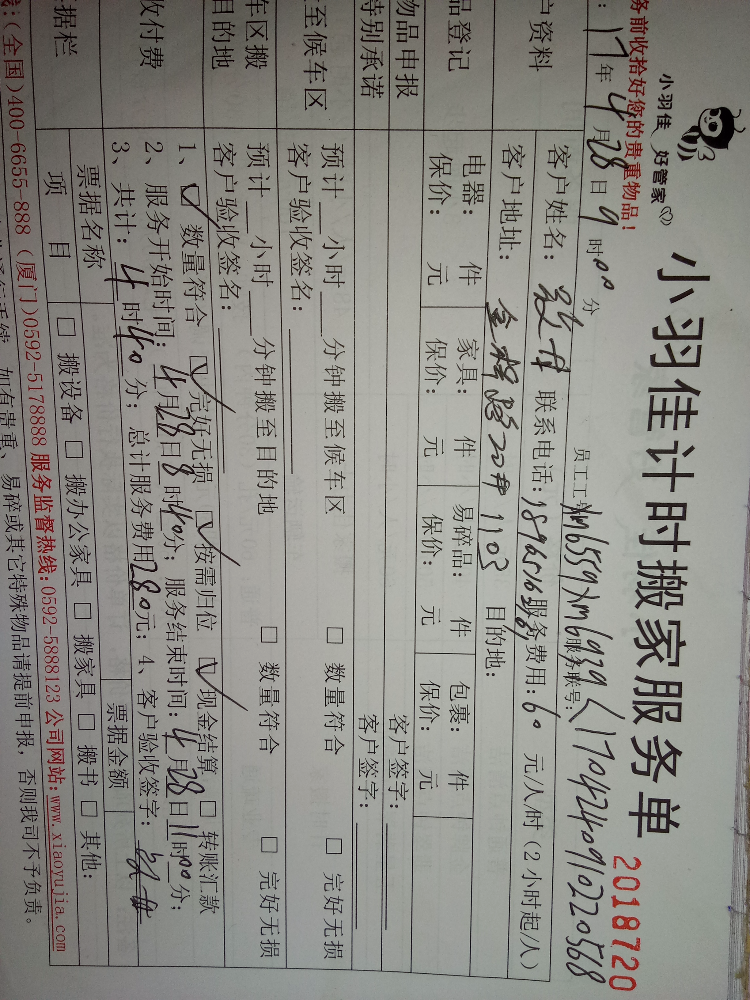 小羽佳 好管家
小羽佳计时搬家服务单
2018720
务前收拾好您的贵重物品!
员工工号 xm6559 xm6929 服务联号: L1704240910220568
: 17年 4月28日 9时00分
户资料
客户姓名: 联系电话: 服务费用: 60 元/人/时 (2小时起/人)
客户地址: 金桥路20# 1103 目的地:
品登记
电器: 件 家具: 件 易碎品: 件 包裹: 件
保价: 元 保价: 元 保价: 元 保价: 元
物品申报 客户签字:
特别承诺 客户签字:
至候车区
预计 小时 分钟搬至候车区 □ 数量符合 □ 完好无损
客户验收签名:
车区搬
目的地
预计 小时 分钟搬至目的地 □ 数量符合 □ 完好无损
客户验收签名:
收付费
1、☑ 数量符合 ☑ 完好无损 ☑ 按需归位 ☑ 现金结算 □ 转账汇款
2、服务开始时间: 4月28日8时40分; 服务结束时间: 4月28日11时00分;
3、共计: 4时40分; 总计服务费用280元; 4、客户验收签字:
据栏
票据名称 票据金额
项 目 □ 搬设备 □ 搬办公家具 □ 搬家具 □ 搬书 □ 其他:
线:(全国)400-6655-888 (厦门)0592-5178888 服务监督热线:0592-5888123 公司网站:www.xiaoyujia.com
如有贵重、易碎或其它特殊物品请提前申报,否则我司不予负责。